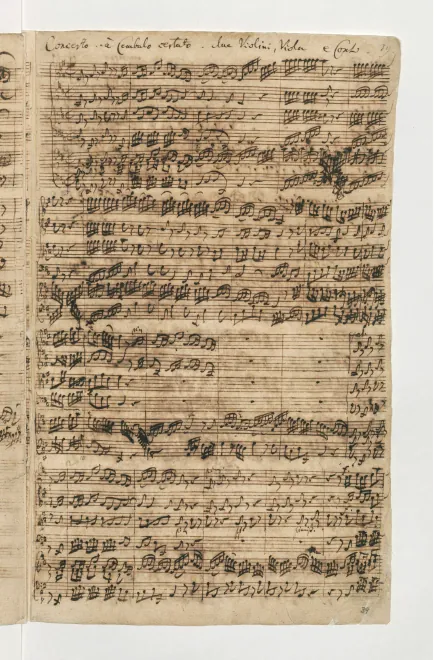 Concerto à Cembalo certato. due Violini, Viola e Cont.
39